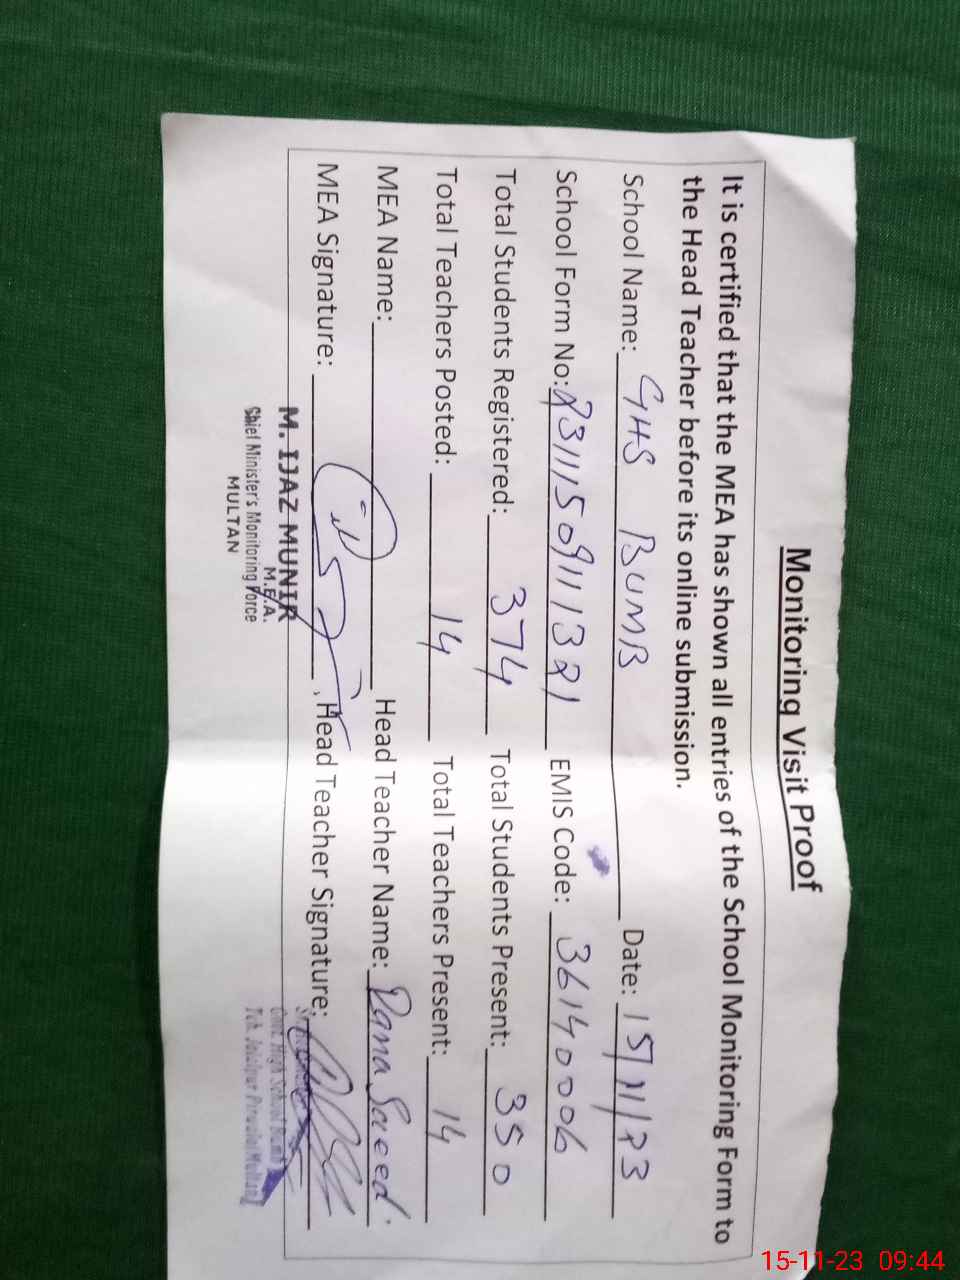 Monitoring Visit Proof
It is certified that the MEA has shown all entries of the School Monitoring Form to
the Head Teacher before its online submission.
School Name: GHS BUMB Date: 15/11/23
School Form No: 23111509111321 EMIS Code: 36140006
Total Students Registered: 374 Total Students Present: 350
Total Teachers Posted: 14 Total Teachers Present: 14
MEA Name: Head Teacher Name: Rana Saeed
MEA Signature: , Head Teacher Signature:
M. IJAZ MUNIR
M.E.A.
Chief Minister's Monitoring Force
MULTAN
Govt. High School
Teh. Jalalpur Pirwala Multan
15-11-23 09:44